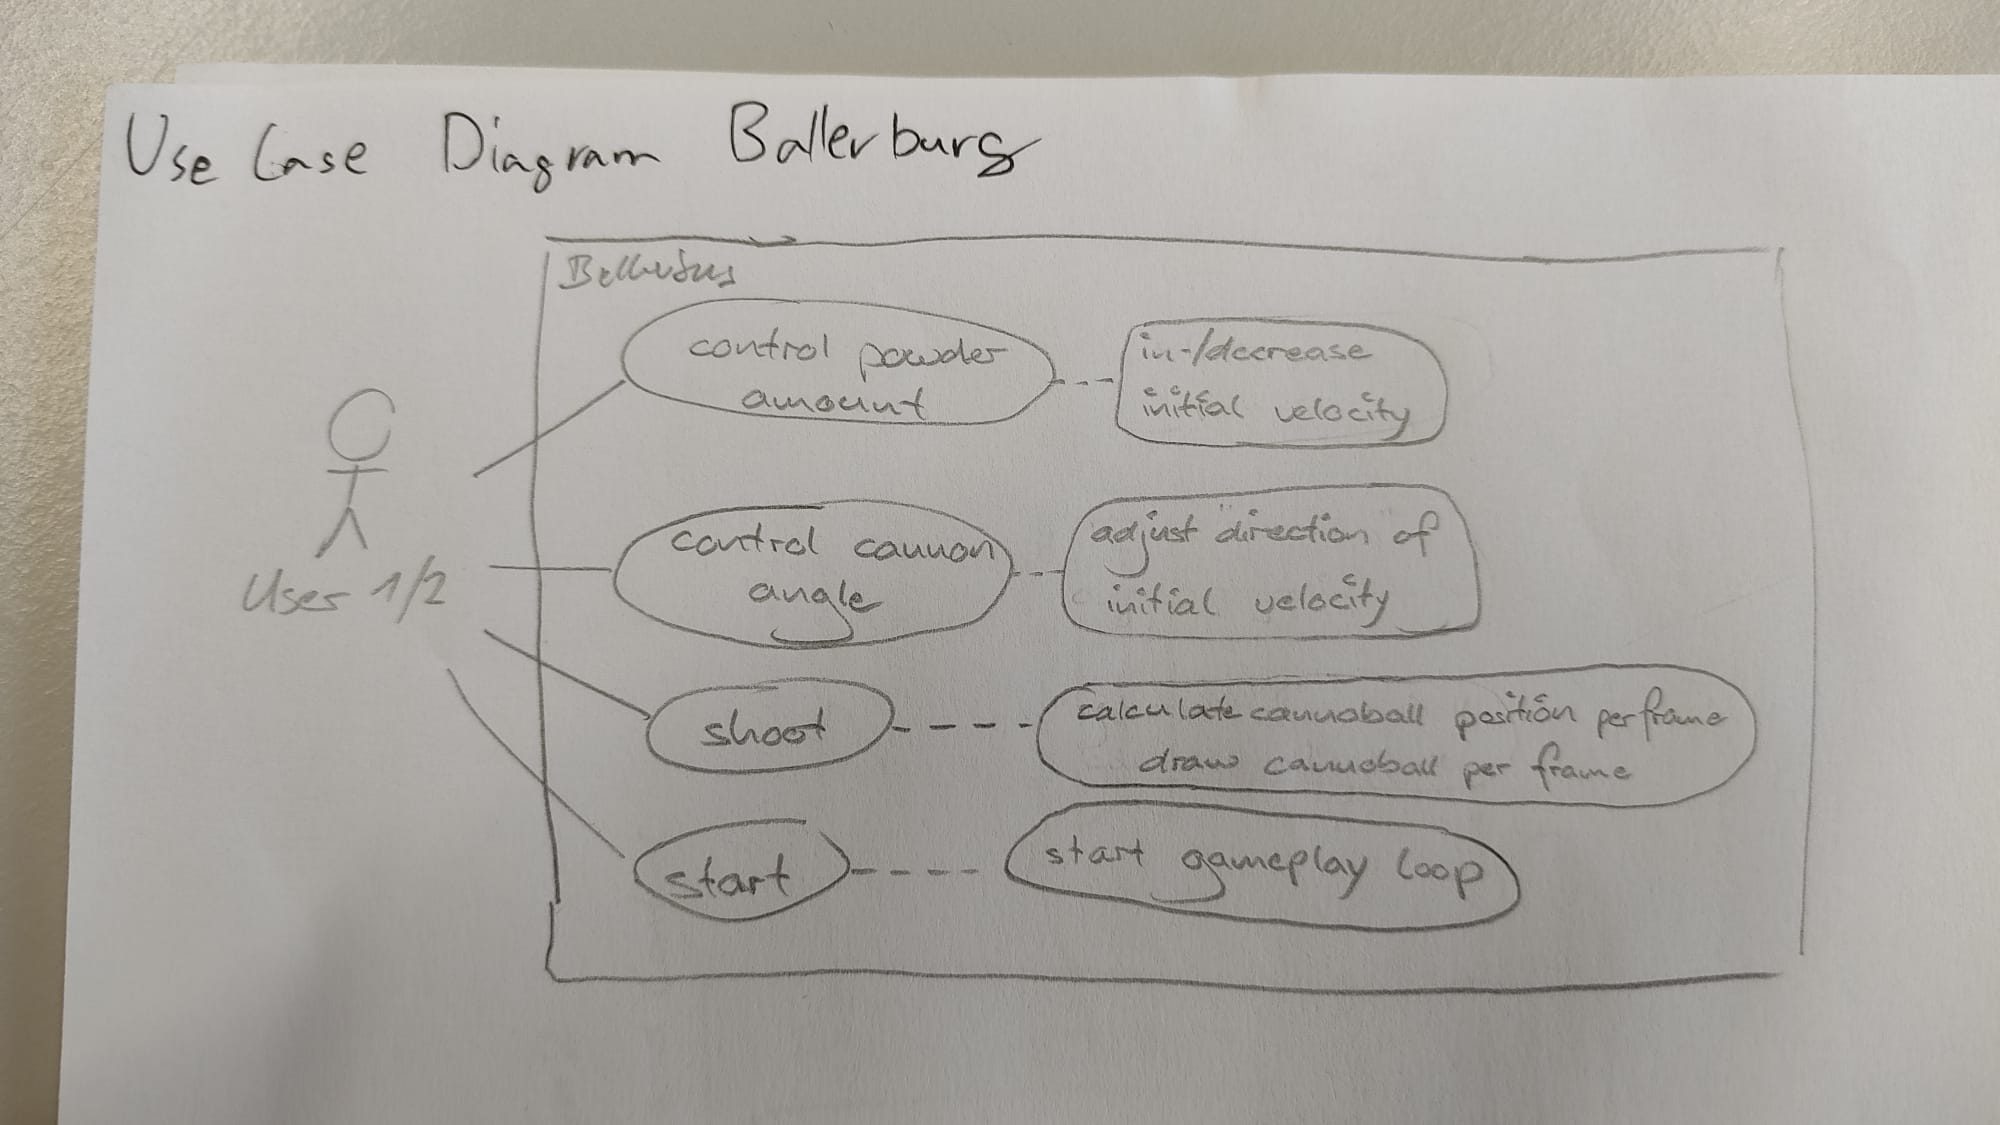 Use Case Diagram Ballerburg
Ballerburg
control powder
amount
in-/decrease
initial velocity
User 1/2
control cannon
angle
adjust direction of
initial velocity
shoot
calculate cannoball position per frame
draw cannoball per frame
start
start gameplay loop